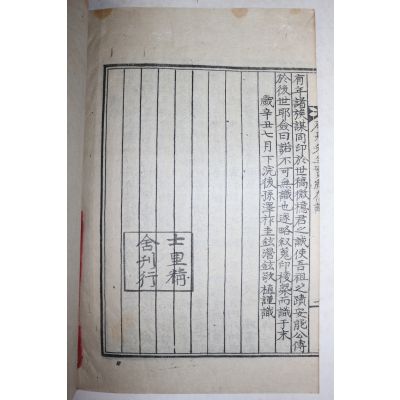 有年諸族謀同印於世稿微檍君之誠使吾祖之蹟安能公傳
於後世耶僉曰諾不可無識也遂略叙蒐印梗槩而識于末
歲辛丑七月下浣後孫澤祚圭鉉潛鉉敬植謹識
士里精
舍刊行